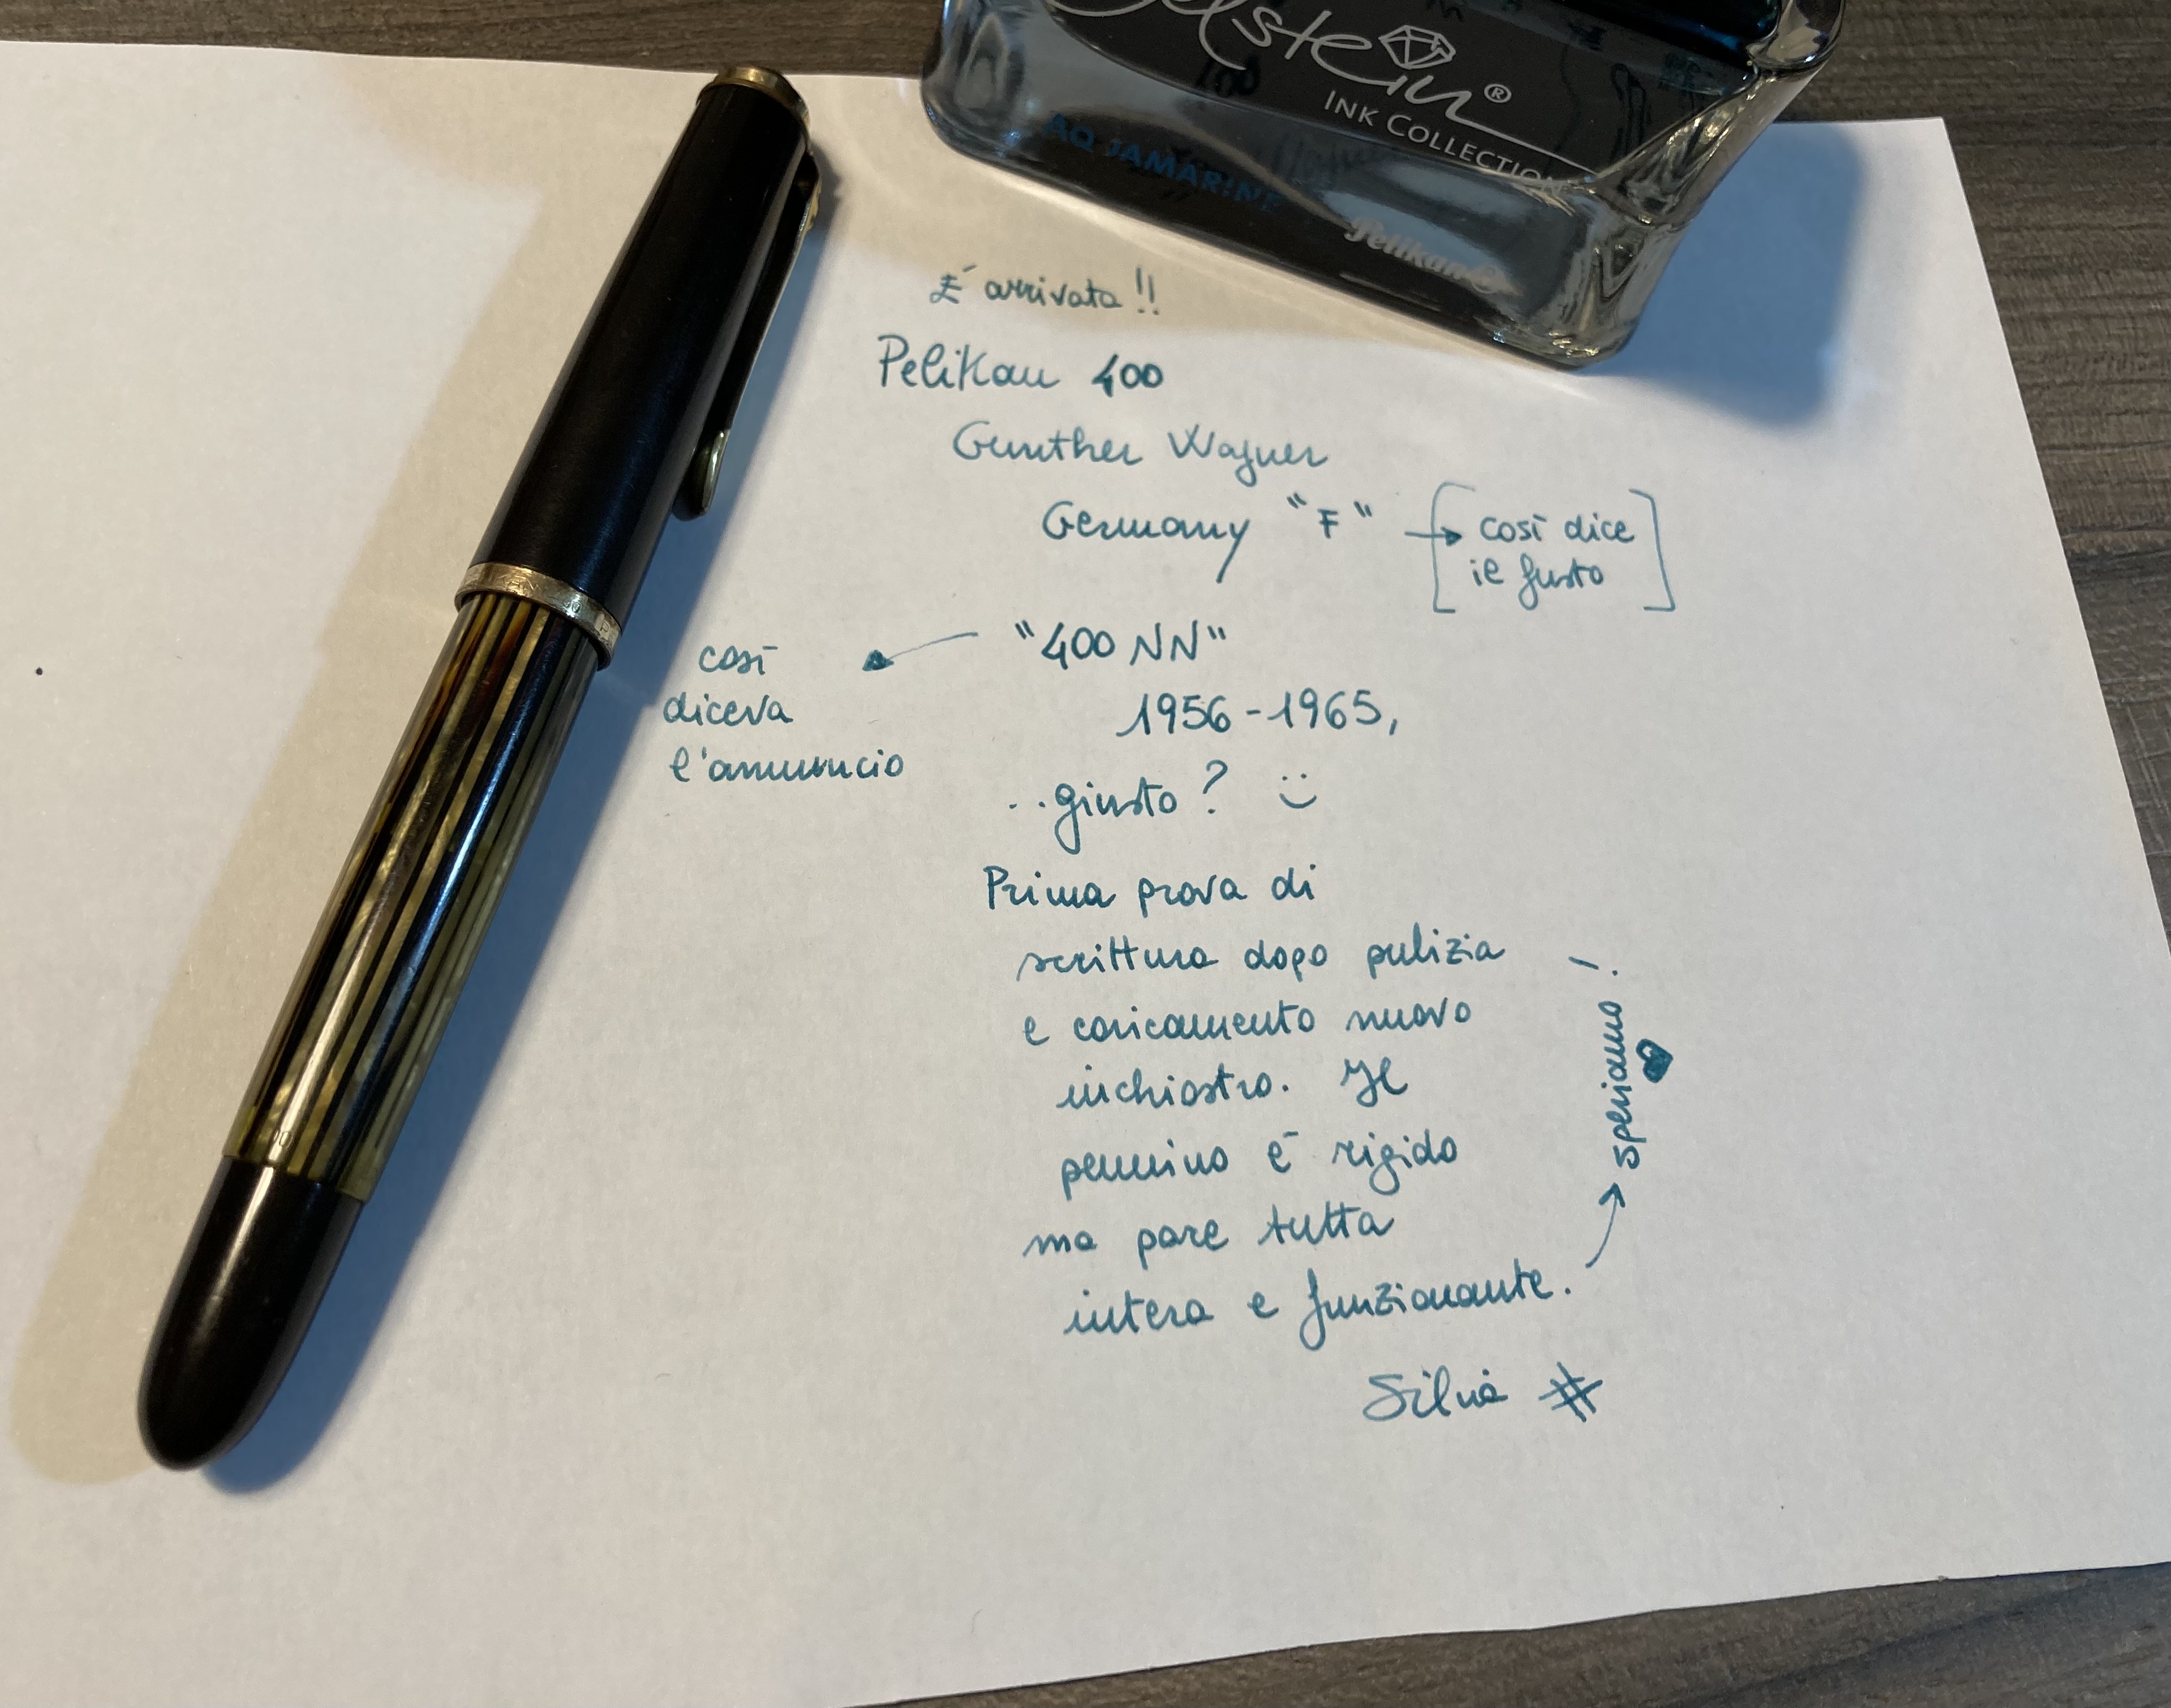 elstein®
INK COLLECTION
AQUAMARINE
Pelikan®
É arrivata!!
Pelikan 400
Gunther Wagner
Germany "F" → [così dice
il fusto]
"400 NN"
così
diceva
l'annuncio
1956-1965,
..giusto? :)
Prima prova di
scrittura dopo pulizia
e caricamento nuovo
inchiostro. Il
pennino è rigido
ma pare tutta
intera e funzionante.
→ speriamo! ♥
Silvia #